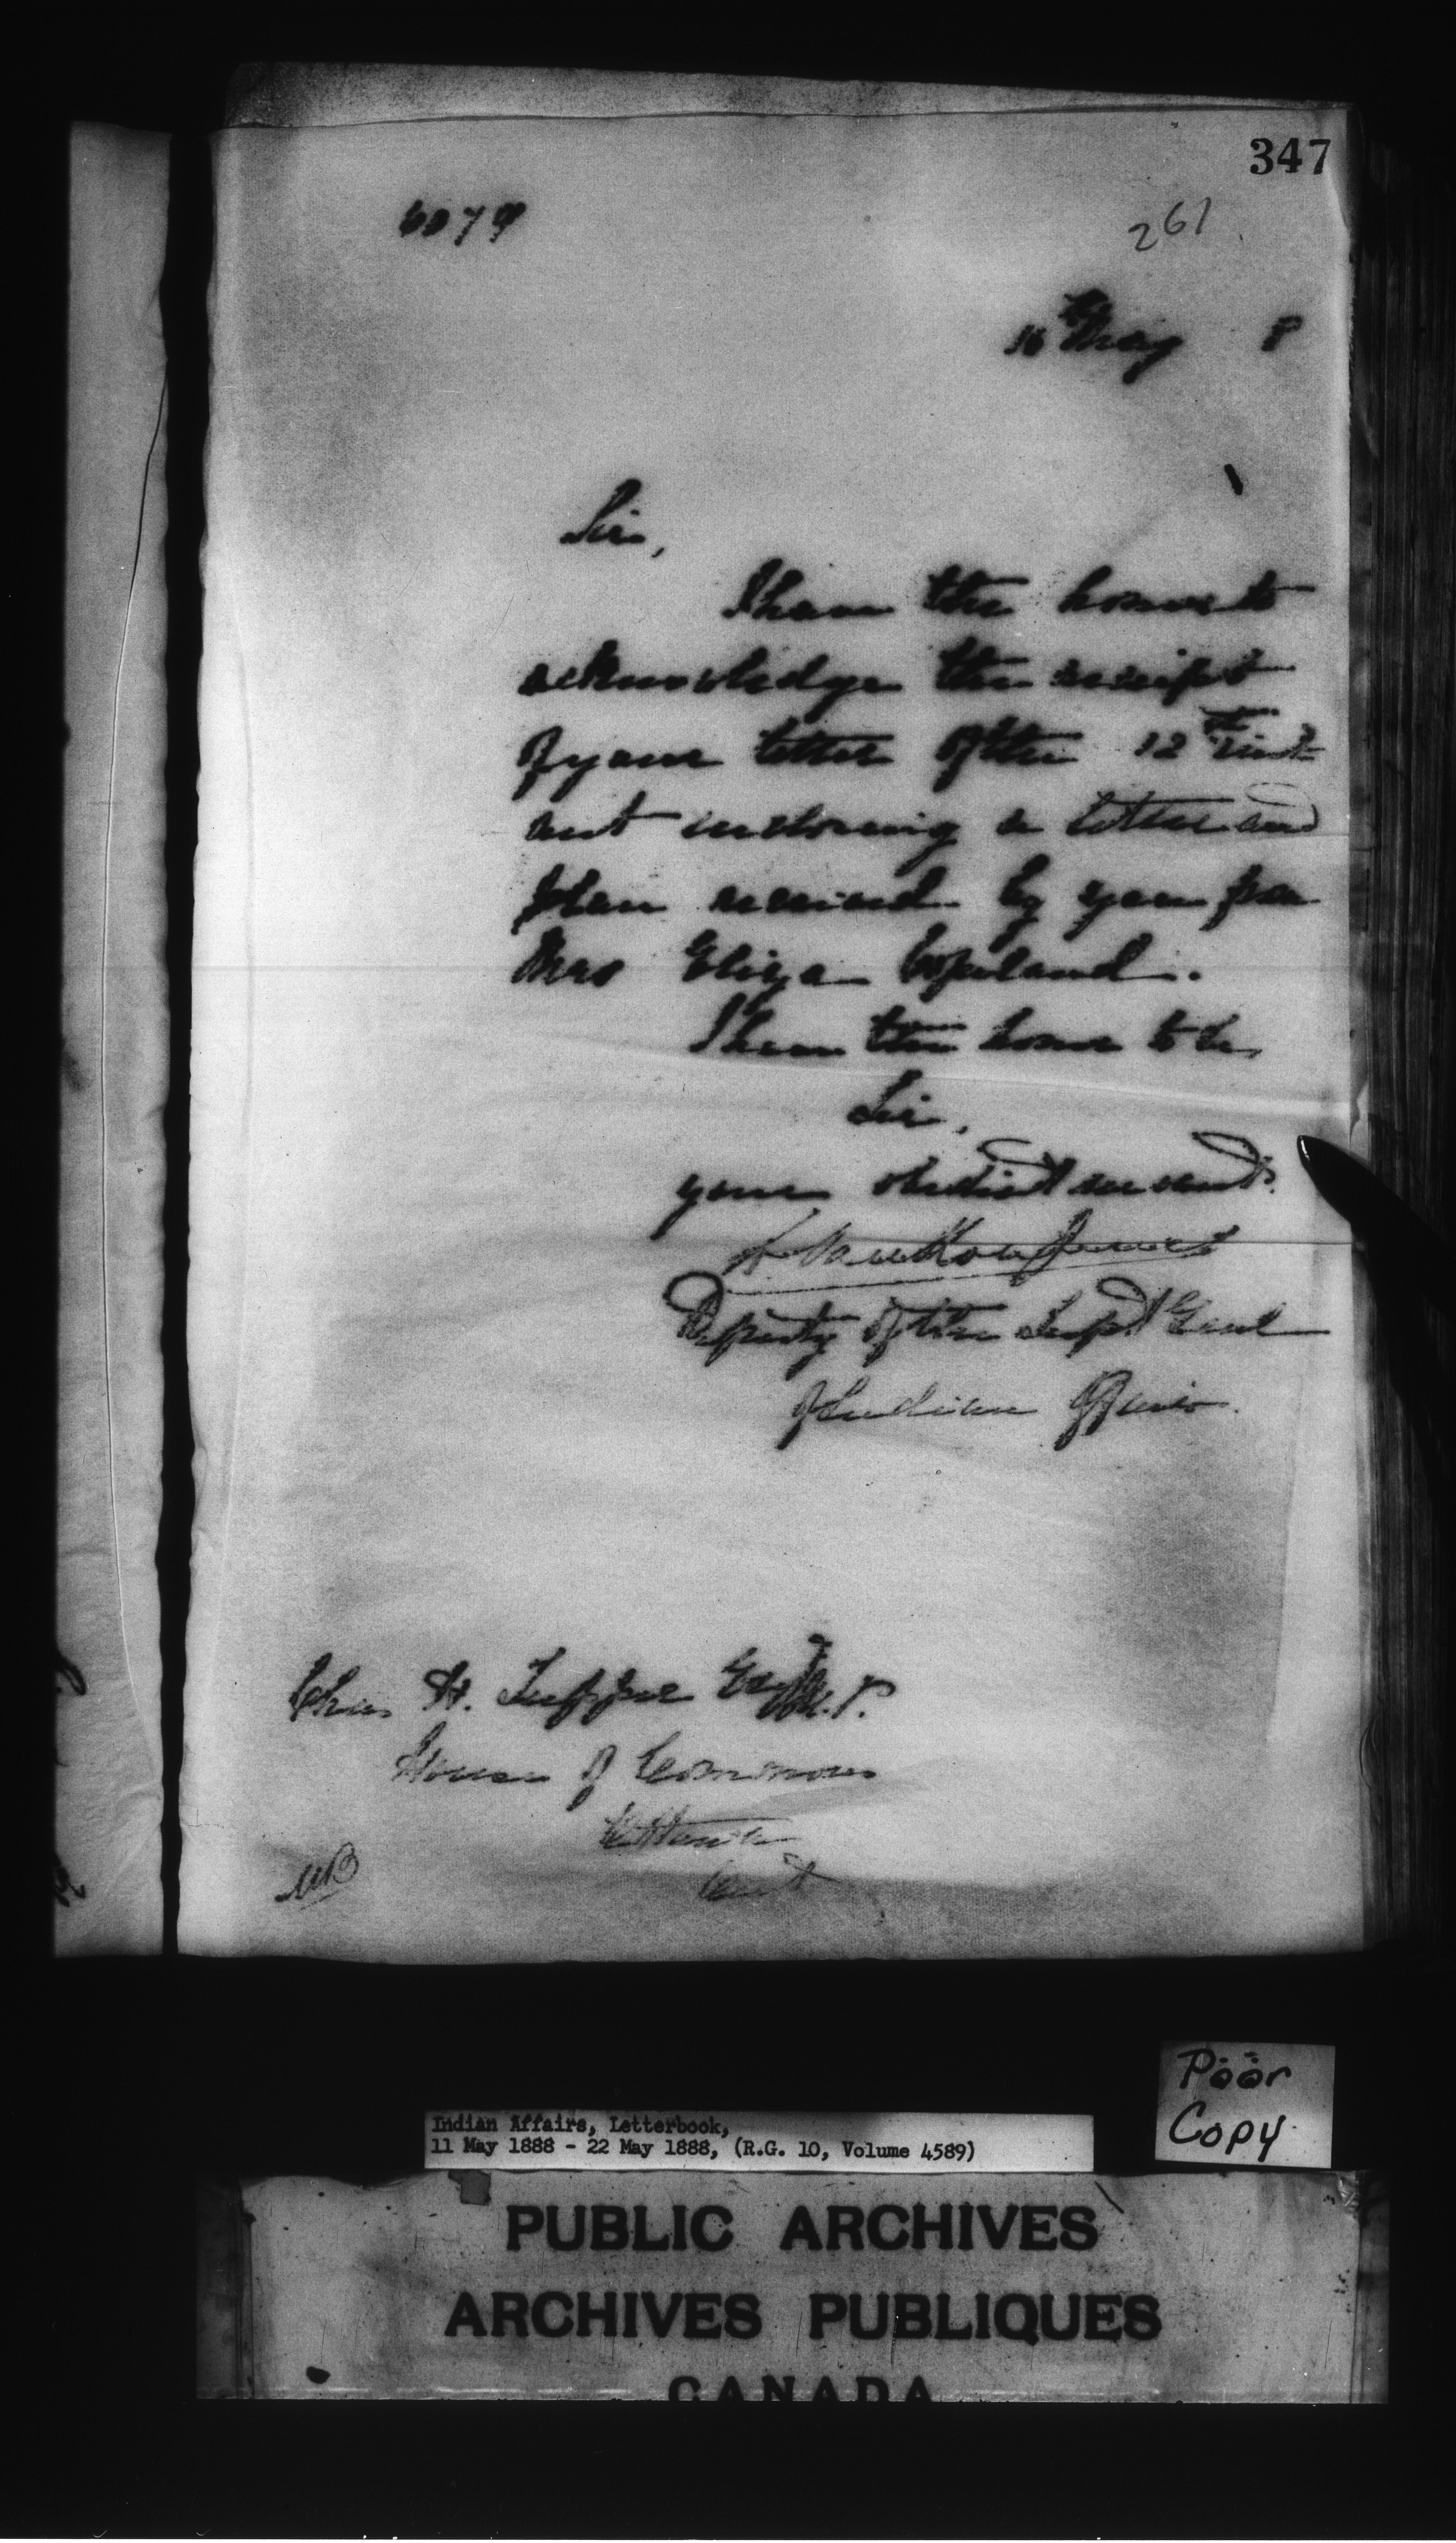 347
6079
261
16 May 8
Sir,
I have the honor to
acknowledge the receipt
of your letter of the 12th inst
inclosing a letter and
plan received by you from
Mrs Eliza Copeland.
I have the honor to be,
Sir,
your obedient servant.
L. VanKoughnet
Deputy of the Supt Genl
of Indian Affairs.
Chas H. Tupper Esq M.P.
House of Commons
Ottawa
Ont
Poor
Copy
Indian Affairs, Letterbook,
11 May 1888 - 22 May 1888, (R.G. 10, Volume 4589)
PUBLIC ARCHIVES
ARCHIVES PUBLIQUES
CANADA